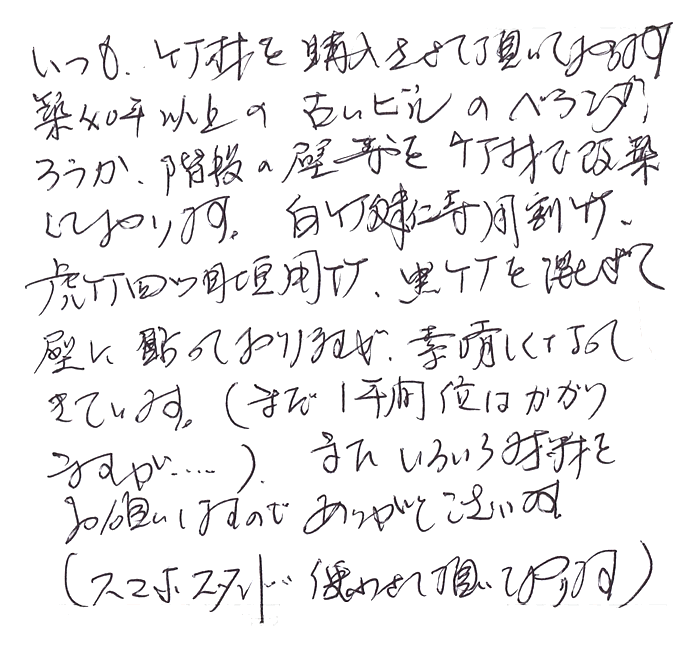 いつも、竹材を購入させて頂いております
築40年以上の古いビルのベランダ、
ろうか、階段の壁等を竹材で改築
しております。白竹建仁寺用割竹、
虎竹四ツ目垣用竹、黒竹を混ぜて
壁に貼っておりますが、素晴しくなって
きています。(まだ1年間位はかかり
ますが.....)、またいろいろ材料を
お願いしますのでありがとうございます
(スマホスタンド使わさせて頂いております)